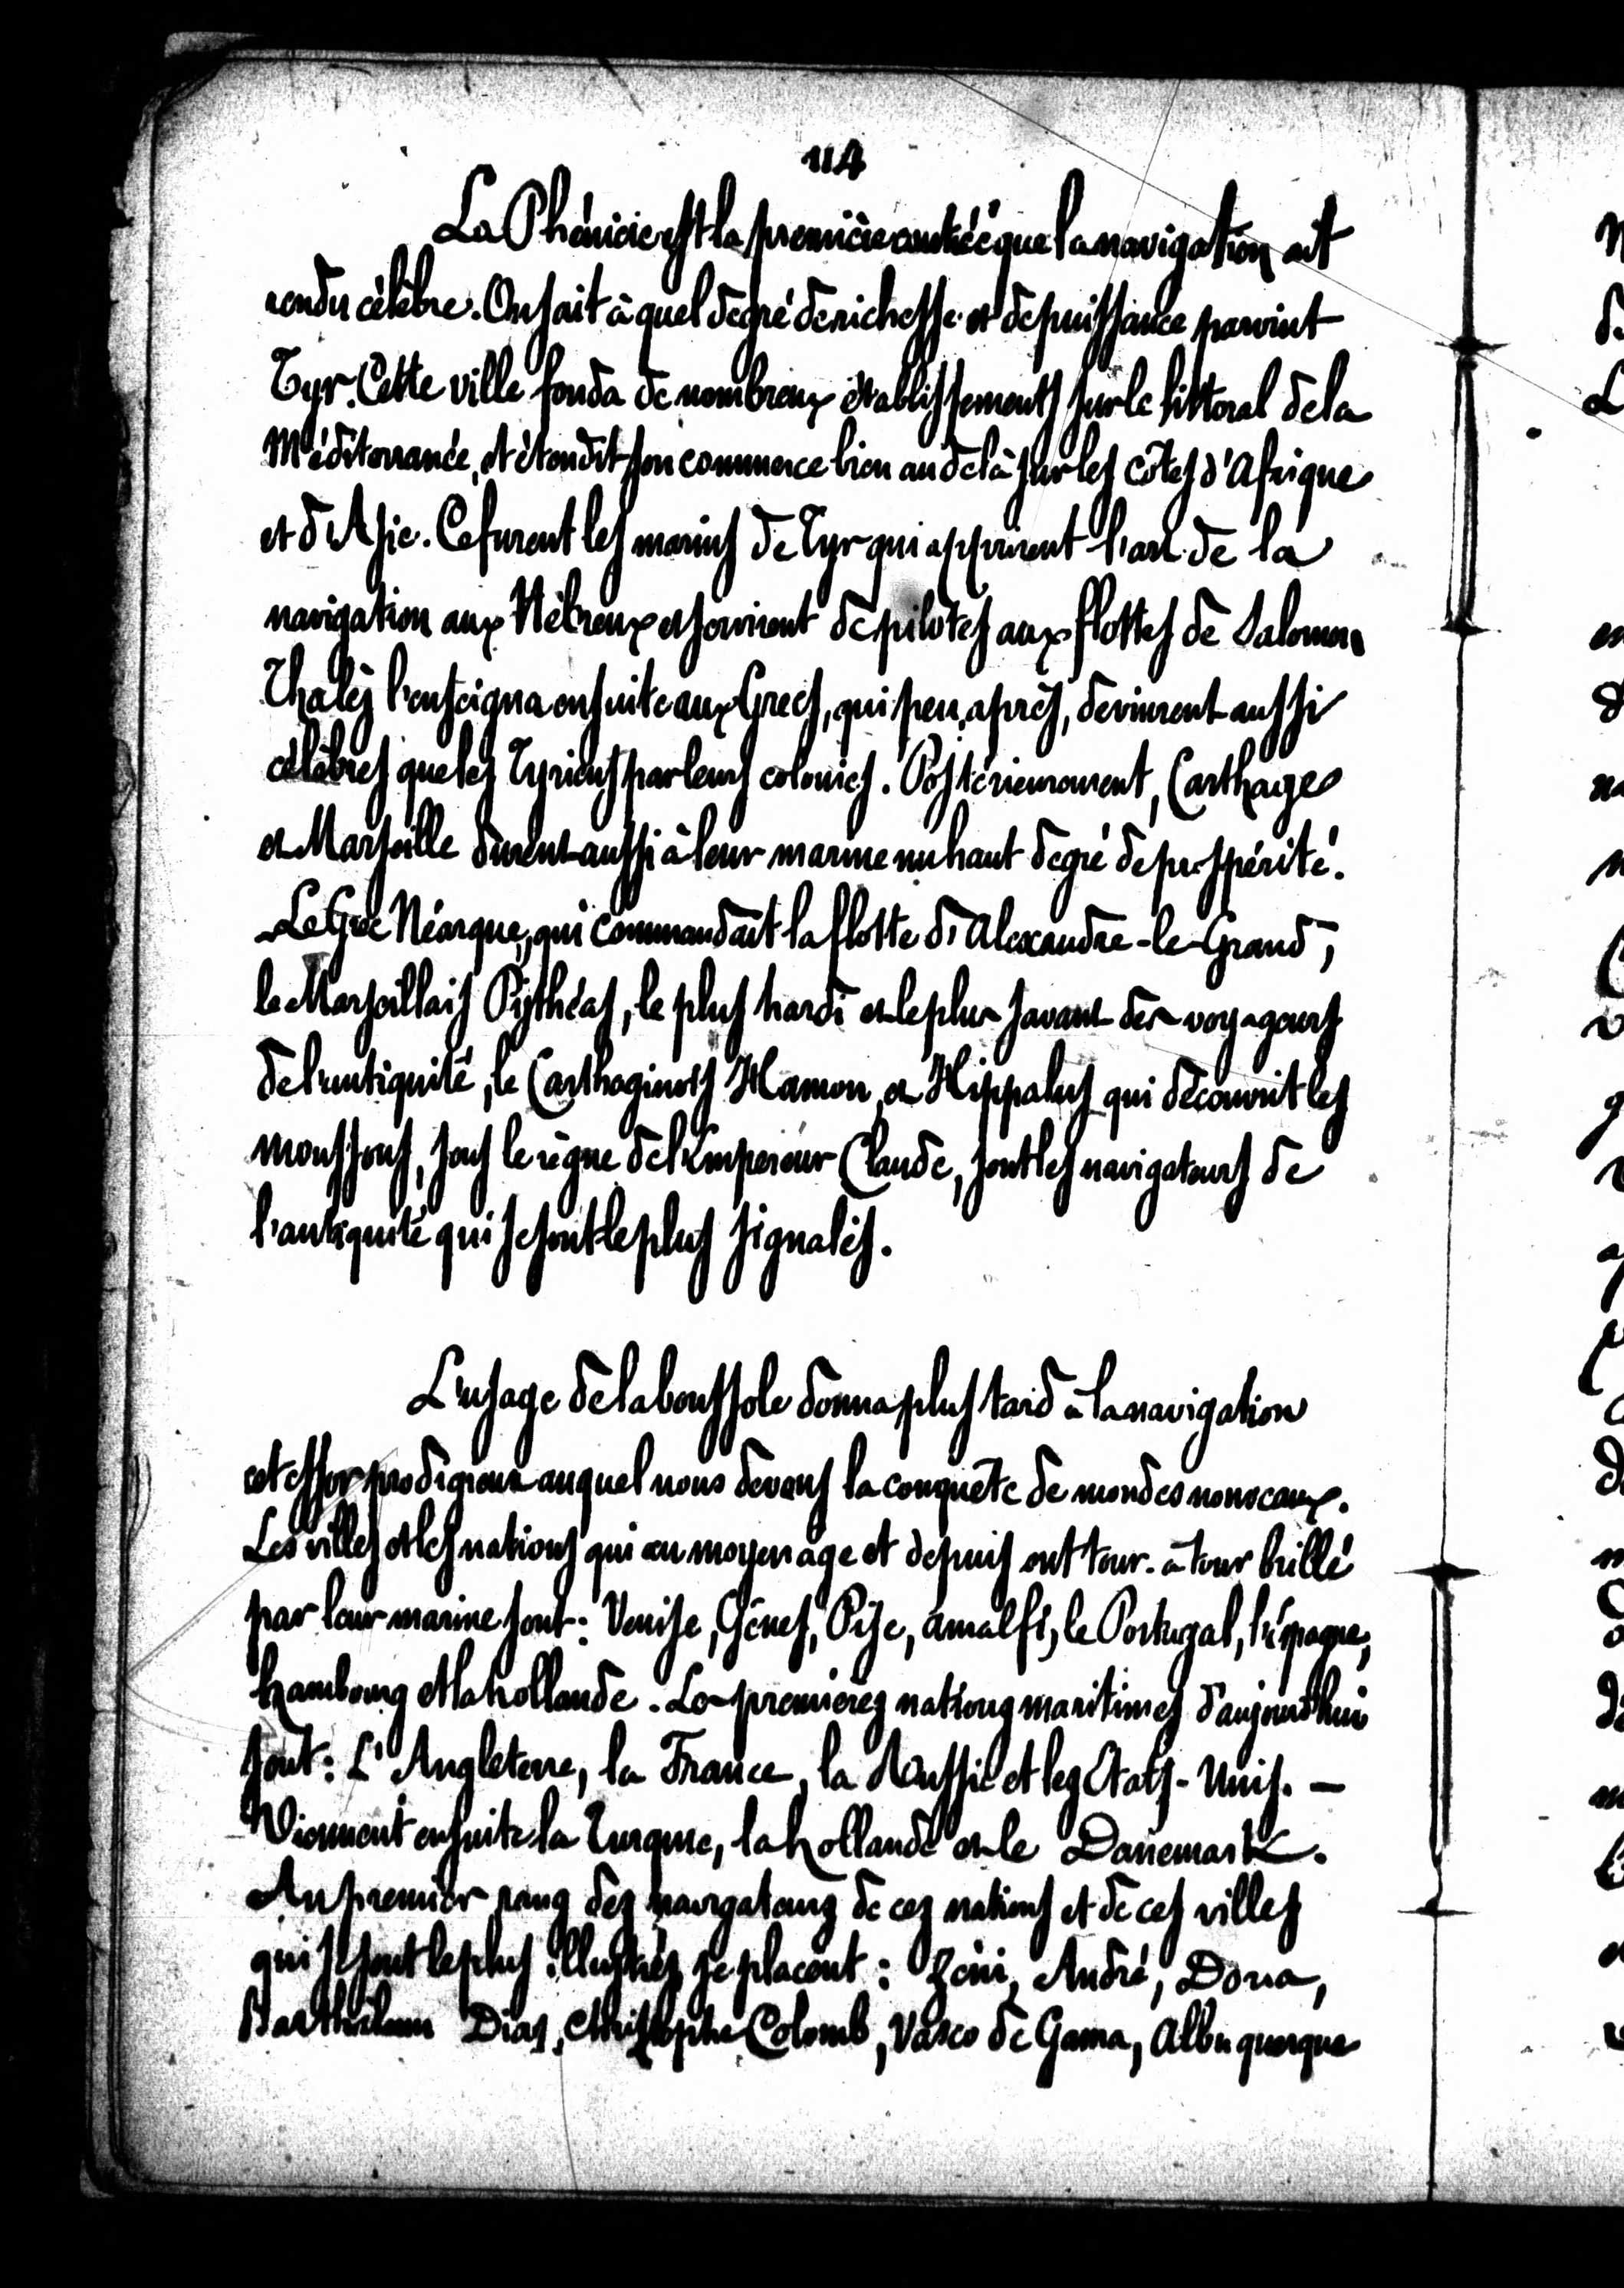 114
La Phénicie est la première contrée que la navigation ait
rendu célèbre. On sait à quel degré de richesse et de puissance parvint
Tyr. Cette ville fonda de nombreux établissements sur le littoral de la
Méditerranée, et étendit son commerce bien au delà sur les côtes d'Afrique
et d'Asie. Ce furent les marins de Tyr qui apprirent l'art de la
navigation aux Hébreux et servirent de pilotes aux flottes de Salomon.
Thalès l'enseigna ensuite aux Grecs, qui peu après, devinrent aussi
célèbres que les Tyriens par leurs colonies. Postérieurement, Carthage
et Marseille durent aussi à leur marine un haut degré de prospérité.
Le Grec Néarque, qui commandait la flotte d'Alexandre-le-Grand,
le Marseillais Pythéas, le plus hardi et le plus savant des voyageurs
de l'antiquité, le Carthaginois Hamon, et Hippalus qui découvrit les
moussons, sous le règne de l'Empereur Claude, sont les navigateurs de
l'antiquité qui se sont le plus signalés.
L'usage de la boussole donna plus tard à la navigation
cet essor prodigieux auquel nous devons la conquête de mondes nouveaux.
Les villes et les nations qui au moyen âge et depuis ont tour-à tour brillé
par leur marine sont: Venise, Gênes, Pise, amalfi, le Portugal, l'Espagne,
hambourg et la hollande. Les premières nations maritimes d'aujourd'hui
sont: L'Angleterre, la France, la Russie et les Etats-Unis. —
Viennent ensuite la Turquie, la hollande et le Danemark.
Au premier rang des navigateurs de ces nations et de ces villes
qui se sont le plus illustrés se placent: Zéni, André, Doria,
Diaz, Christophe Colomb, Vasco de Gama, Albuquerque